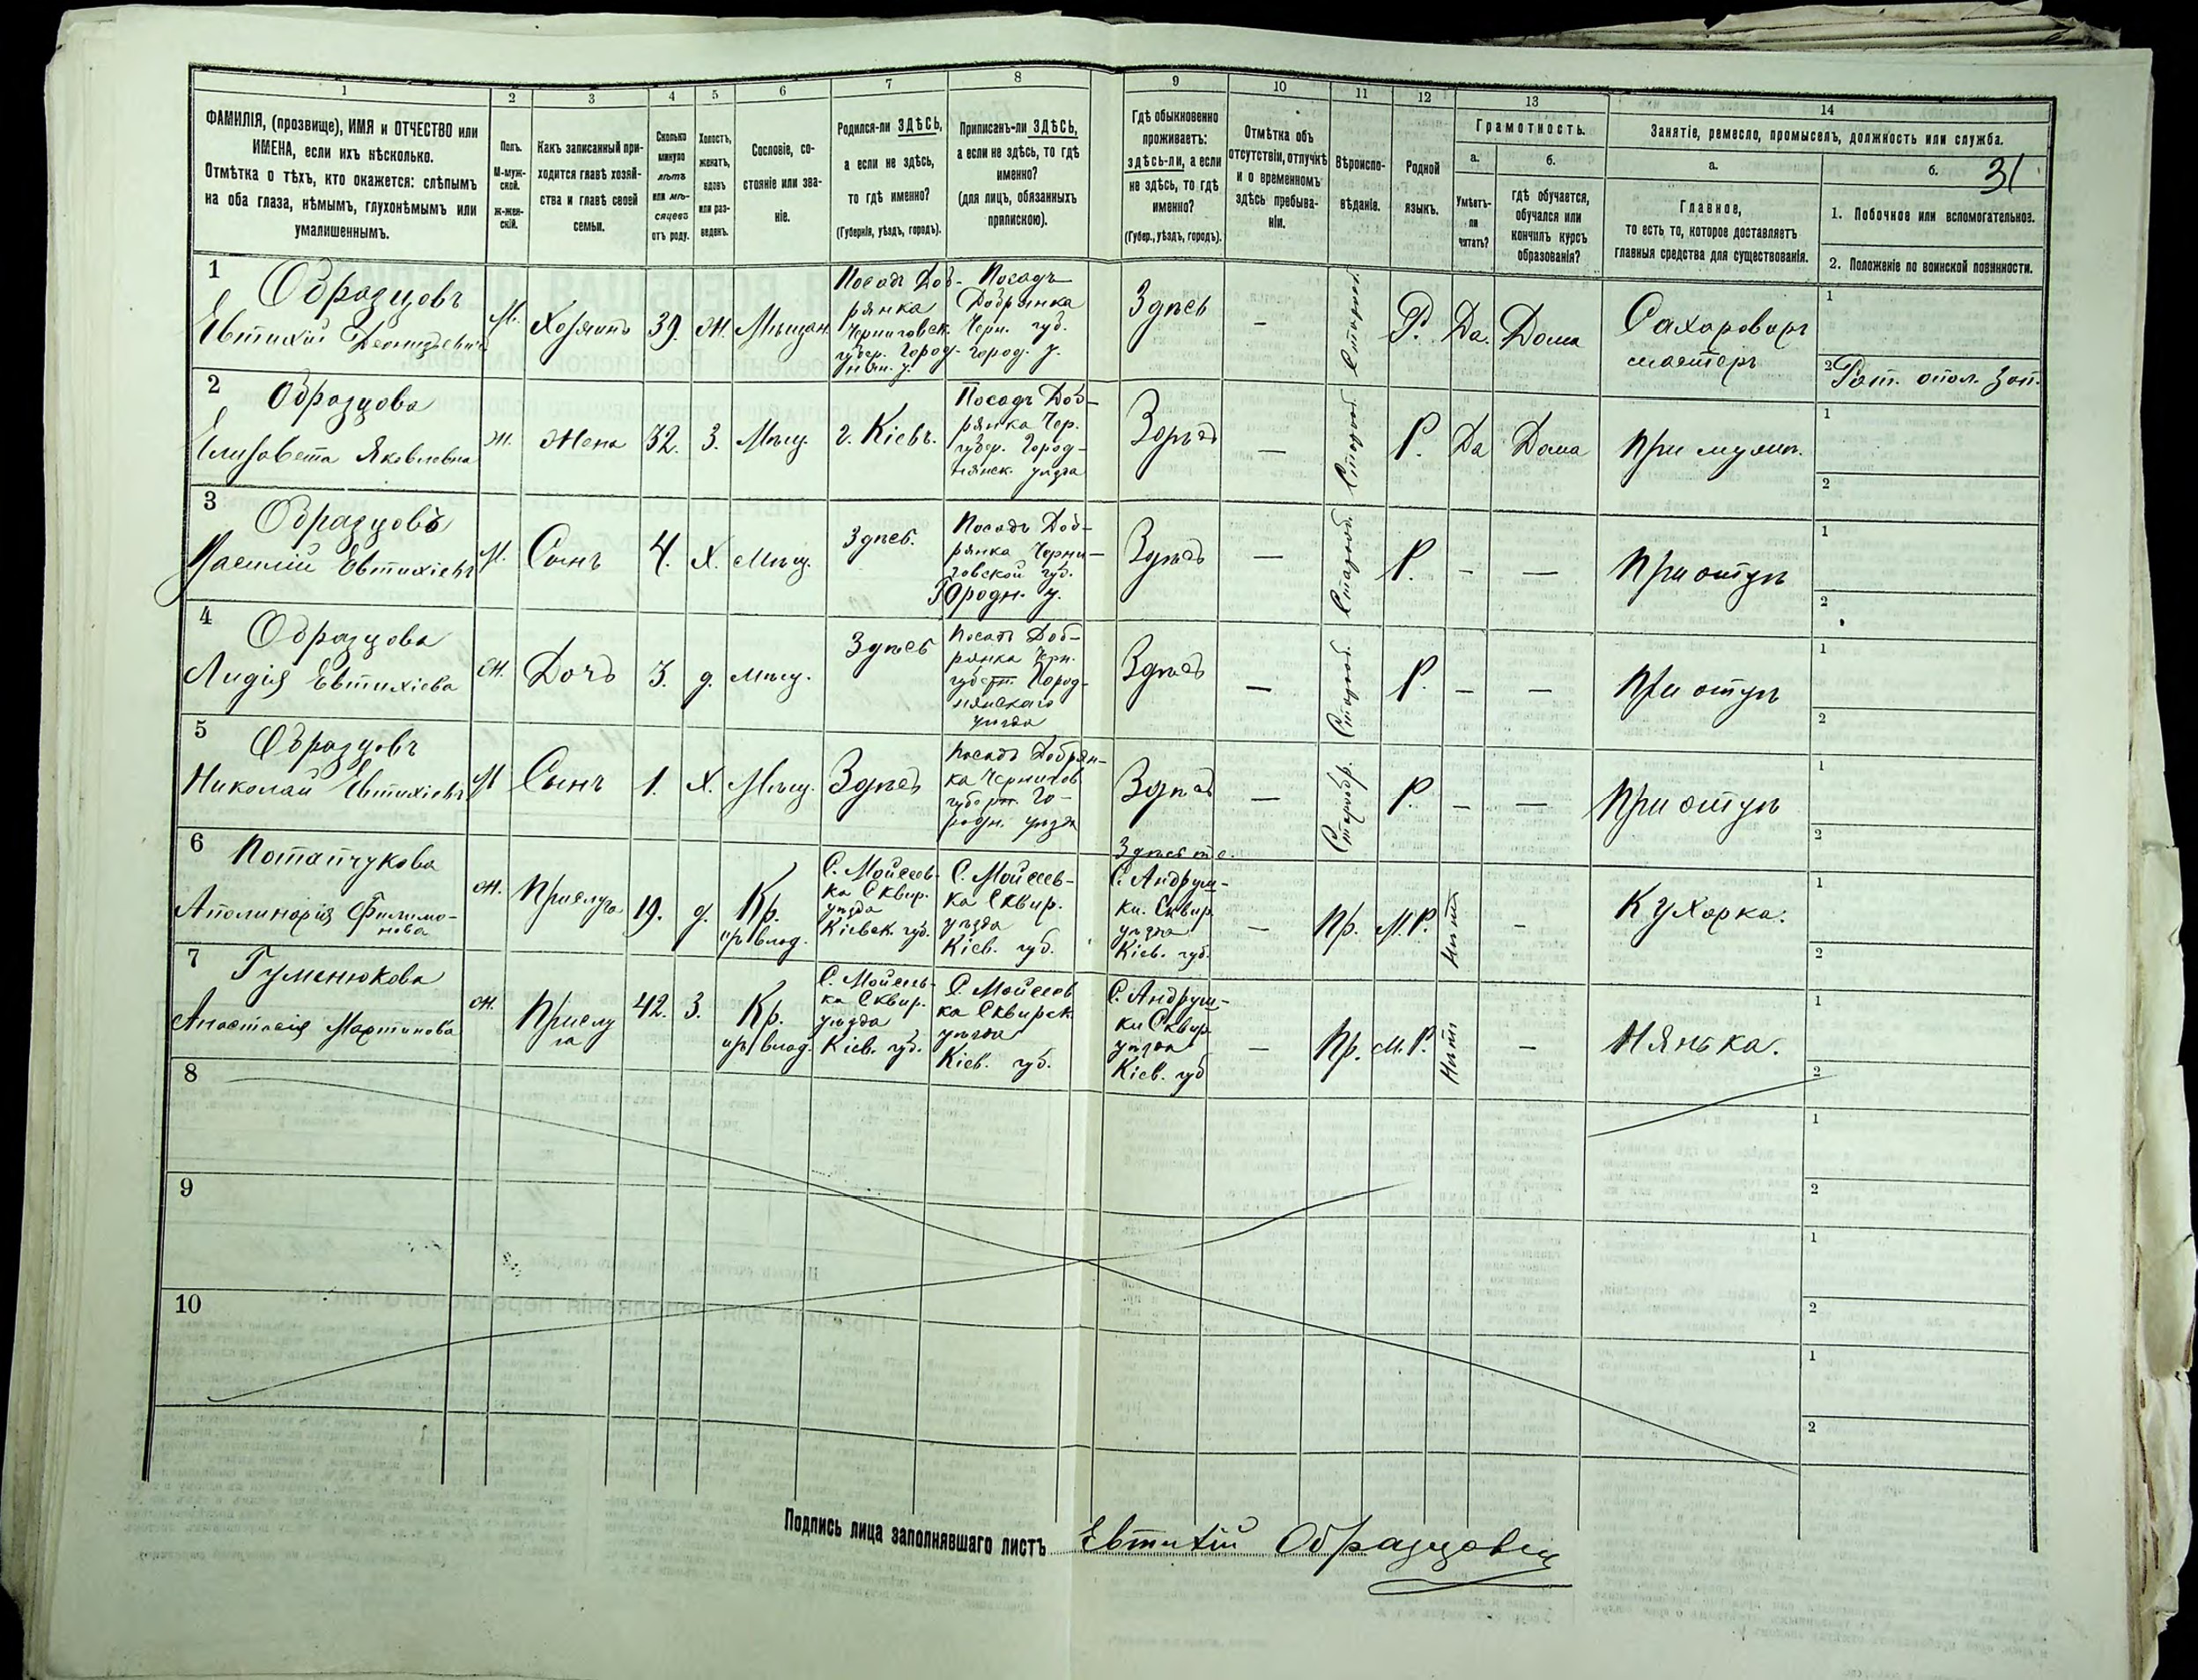 1
2
3
4
5
6
7
8
9
10
11
12
13
14
ФАМИЛІЯ, (прозвище), ИМЯ и ОТЧЕСТВО или
ИМЕНА, если ихъ нѣсколько.
Отмѣтка о тѣхъ, кто окажется: слѣпымъ
на оба глаза, нѣмымъ, глухонѣмымъ или
умалишеннымъ.
Полъ.
М-муж-
ской.
ж-жен-
скій.
Какъ записанный при-
ходится главѣ хозяй-
ства и главѣ своей
семьи.
Сколько
минуло
лѣтъ
или мѣ-
сяцевъ
отъ роду.
Холостъ,
женатъ,
вдовъ
или раз-
веденъ.
Сословіе, со-
стояніе или зва-
ніе.
Родился-ли ЗДѢСЬ,
а если не здѣсь,
то гдѣ именно?
(Губернія, уѣздъ, городъ).
Приписанъ-ли ЗДѢСЬ,
а если не здѣсь, то гдѣ
именно?
(для лицъ, обязанныхъ
припискою).
Гдѣ обыкновенно
проживаетъ:
здѣсь-ли, а если
не здѣсь, то гдѣ
именно?
(Губер., уѣздъ, городъ).
Отмѣтка объ
отсутствіи, отлучкѣ
и о временномъ
здѣсь пребыва-
ніи.
Вѣроиспо-
вѣданіе.
Родной
языкъ.
Грамотность.
а.
б.
Умѣетъ-
ли
читать?
гдѣ обучается,
обучался или
кончилъ курсъ
образованія?
Занятіе, ремесло, промыселъ, должность или служба.
а.
б.
31
Главное,
то есть то, которое доставляетъ
главныя средства для существованія.
1. Побочное или вспомогательное.
2. Положеніе по воинской повинности.
1
Образцовъ
Евтихій Леонидевичъ
М.
Хозяинъ
39.
Ж.
Мѣщан.
Посадъ Доб-
рянка
Черниговск.
губер. Город-
нян. у.
Посадъ
Добрянка
Черн. губ.
город. у.
Здѣсь
—
Р.
Да.
Дома
Сахароваръ
мастеръ
1
2 Рат. опол. зап.
2
Образцова
Елизавета Яковлевна
Ж.
Жена
32.
З.
Мѣщ.
г. Кіевъ.
Посадъ Доб-
рянка Чер.
губер. Город-
нянск. уѣзда
Здѣсь
—
Старооб.
Р.
Да
Дома
При мужѣ.
1
2
3
Образцовъ
Василій Евтихіевъ
М.
Сынъ
4.
Х.
Мѣщ.
Здѣсь.
Посадъ Доб-
рянка Черни-
говской губ.
Городн. у.
Здѣсь
—
Старооб.
Р.
-
—
При отцѣ
1
2
4
Образцова
Лидія Евтихіева
Ж.
Дочь
3.
д.
Мѣщ.
Здѣсь
Посадъ Доб-
рянка Чрн.
губерн. Город-
нянскаго
уѣзда
Здѣсь
—
Старооб.
Р.
-
—
При отцѣ
1
2
5
Образцовъ
Николай Евтихіевъ
М
Сынъ
1.
Х.
Мѣщ.
Здѣсь
Посадъ Добрян-
ка Чернигов
губерн. Го-
родн. уѣзда
Здѣсь
—
Старообр.
Р.
-
—
При отцѣ
1
2
6
Потапчукова
Аполинарія Филимо-
нова
Ж.
Прислуга
19.
д.
Кр.
С. Мойсеев-
ка Сквир.
уѣзда
Кіевск. губ.
С. Мойсеев-
ка Сквир.
уѣзда
Кіев. губ.
С. Андруш-
ки. Сквир.
уѣзда
Кіев. губ.
—
Пр.
М.Р.
Нѣтъ
-
Кухарка.
1
2
7
Гуменюкова
Анастасія Мартинова
Ж.
Прислу
га
42.
З.
Кр.
С. Мойсеев-
ка Сквир.
уѣзда
Кіев. губ.
С. Мойсеев
ка Сквирск.
уѣзда
Кіев. губ.
С. Андруш-
ки Сквир.
уѣзда
Кіев. губ
—
Пр.
М.Р.
Нѣтъ
—
Нянька.
1
2
8
1
2
9
1
2
10
1
2
Подпись лица заполнявшаго листъ Евтихій Образцовъ